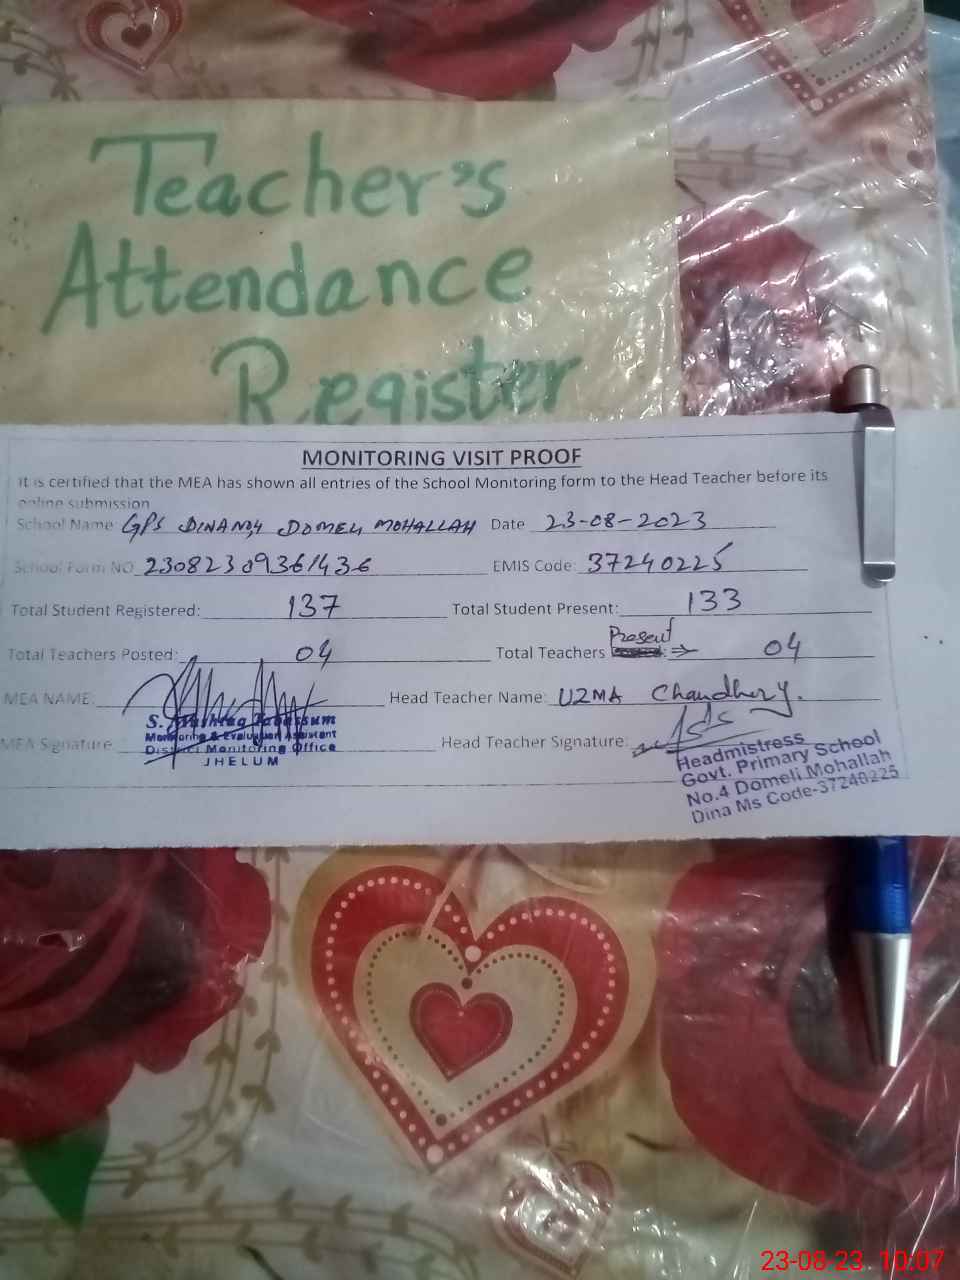 Teacher's
Attendance
Register
MONITORING VISIT PROOF
It is certified that the MEA has shown all entries of the School Monitoring form to the Head Teacher before its
online submission
School Name GPS DINA NO,4 DOMELI MOHALLAH Date 23-08-2023
School Form NO 23082309361436 EMIS Code: 37240225
Total Student Registered: 137 Total Student Present: 133
Total Teachers Posted: 04 Total Teachers Present : ⇒ 04
MEA NAME: Head Teacher Name: UZMA Chaudhery.
S. Mushtaq Tabassum
Monitoring & Evaluation Assistant
MEA Signature Head Teacher Signature:
District Monitoring Office
JHELUM
Headmistress
Govt. Primary School
No.4 Domeli Mohallah
Dina Ms Code-37240225
23-08-23 10:07